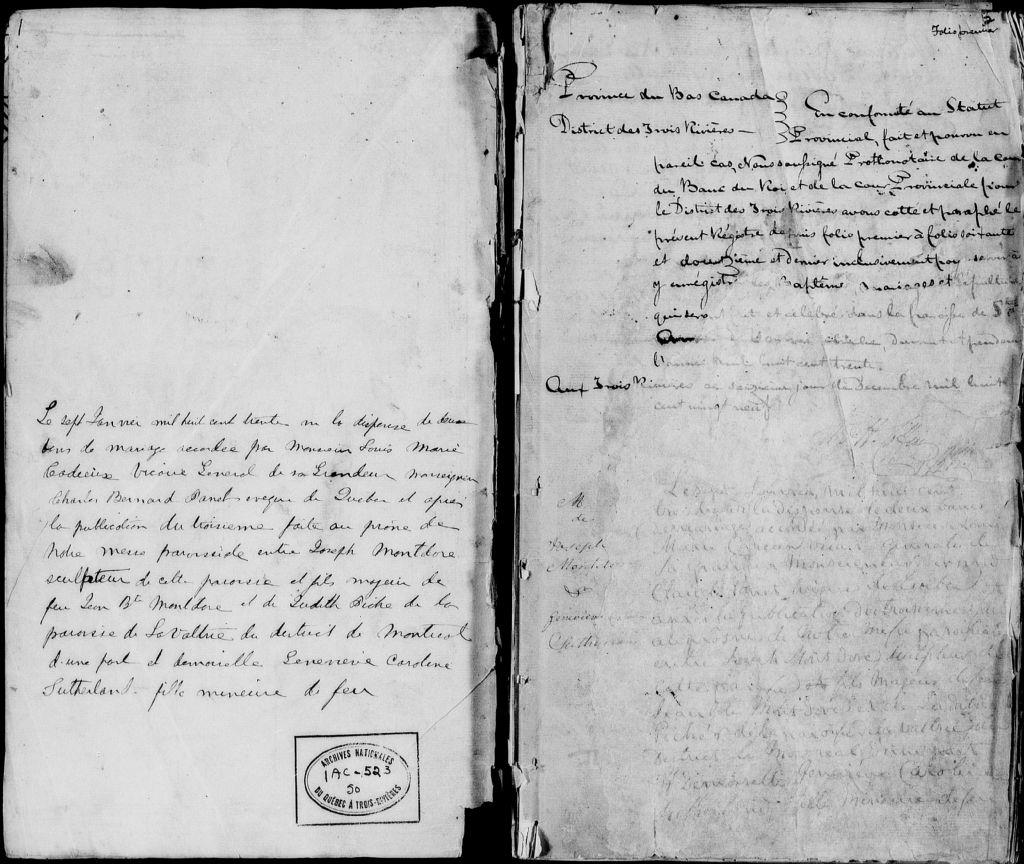 1
Le sept Janvier mil huit cent trente vu la dispense de deux
bans de mariage accordée par Monsieur Louis Marie
Cadieux Vicaire General de sa Grandeur monseigneur
Charles Bernard Panet eveque de Quebec et après
la publication du troisieme faite au prône de
notre messe paroissiale entre Joseph Montdore
sculpteur de cette paroisse et fils majeur de
feu Jean Bte Montdore et de Judith Piche de la
paroisse de Lavaltrie du district de Montreal
d'une part et demoiselle Genevieve Caroline
Sutherland fille mineure de feu
ARCHIVES NATIONALES
1AC-523
50
DU QUÉBEC À TROIS-RIVIÈRES
Folio premier
Province du Bas Canada
District des Trois Rivières —
En conformité au Statut
Provincial, fait et pourvu en
pareil cas, Nous soussigné Prothonotaire de la cour
du Banc du Roi, et de la cour Provinciale pour
le District des Trois Rivières avons cotté et paraphé le
présent Régistre depuis folio premier à folio soixante
et douzième et dernier inclusivement pour servir à
y enrégistrer les Baptêmes, mariages et Sépultures
qui seront fait et célébré dans la paroisse de Ste
Anne durant et pendant
l'année mil huit cent trente.
Aux Trois Rivières ce jour de Decembre mil huit
cent vingt neuf
M
de
Joseph
Montdore
&
Genevieve
Sutherland
Le sept Janvier, mil huit cent
trente, vu la dispense de deux bans
de mariage accordée par Monsieur Louis
Marie Cadieux Vicaire Général de
sa grandeur Monseigneur Bernard
Claude Panet, évêque de Quebec et
après la publication du troisieme
au prône de notre messe paroissiale
entre Joseph Montdore, sculpteur de
cette paroisse et fils majeur de feu
Jean Bte Montdore et de Judith
Piché de la paroisse de Lavaltrie du
District de Montreal, d'une part
et Demoiselle Genevieve Caroline
Sutherland fille mineure de feu